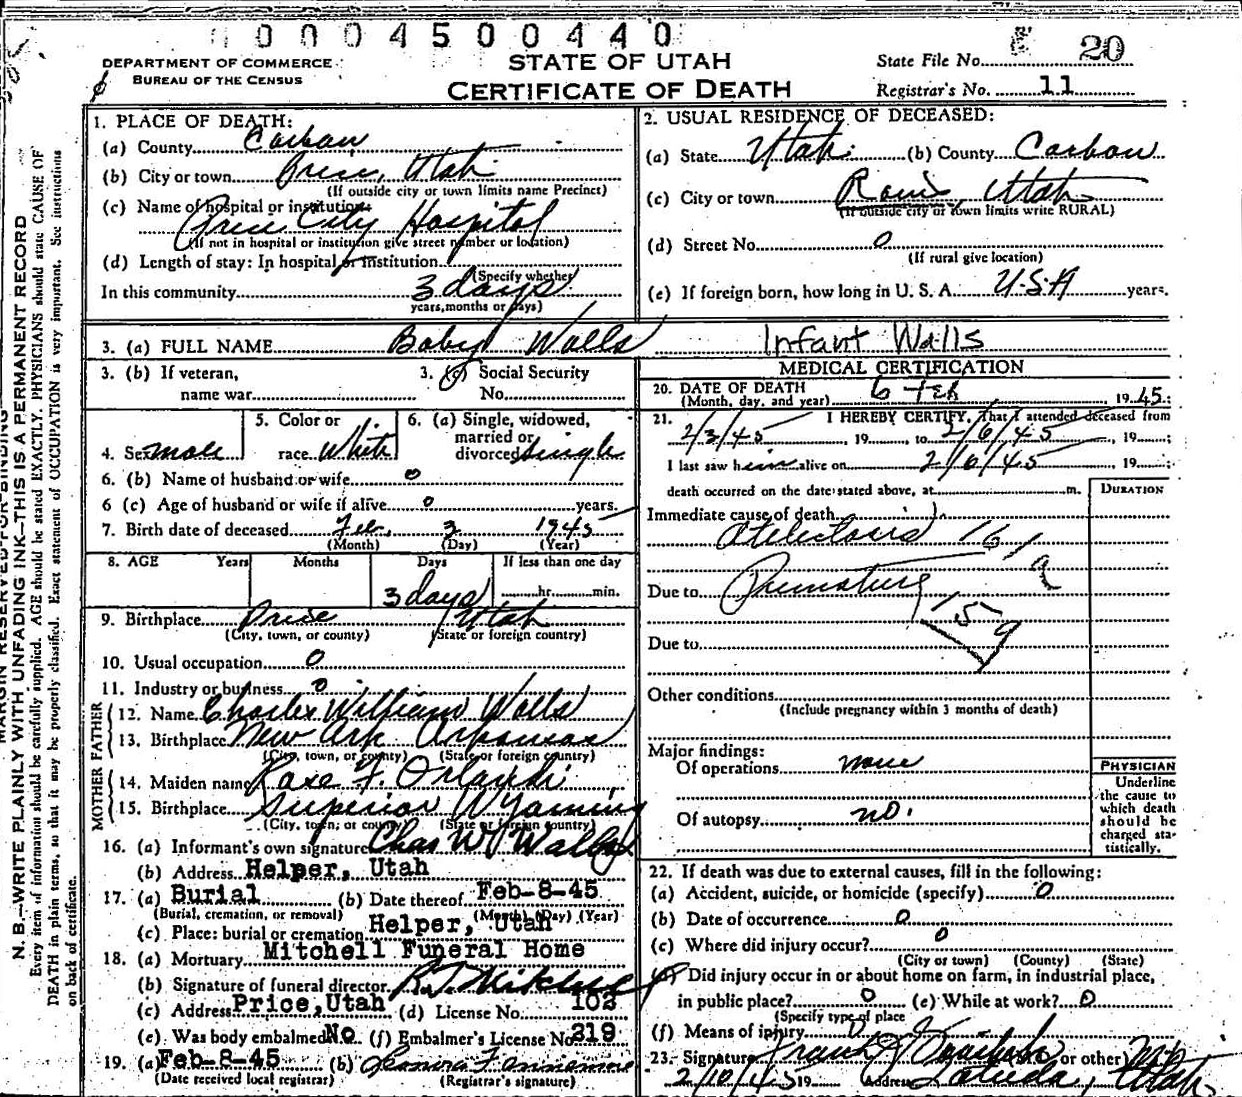 0004500440
DEPARTMENT OF COMMERCE
BUREAU OF THE CENSUS
STATE OF UTAH
CERTIFICATE OF DEATH
State File No. 20
Registrar's No. 11
MARGIN RESERVED FOR BINDING
N. B.—WRITE PLAINLY WITH UNFADING INK—THIS IS A PERMANENT RECORD
Every item of information should be carefully supplied. AGE should be stated EXACTLY. PHYSICIANS should state CAUSE OF
DEATH in plain terms, so that it may be properly classified. Exact statement of OCCUPATION is very important. See instructions
on back of certificate.
1. PLACE OF DEATH:
(a) County Carbon
(b) City or town Price, Utah
(If outside city or town limits name Precinct)
(c) Name of hospital or institution:
Price City Hospital
(If not in hospital or institution give street number or location)
(d) Length of stay: In hospital or institution
(Specify whether
In this community 3 days
years, months or days)
2. USUAL RESIDENCE OF DECEASED:
(a) State Utah (b) County Carbon
(c) City or town Utah
(If outside city or town limits write RURAL)
(d) Street No. 0
(If rural give location)
(e) If foreign born, how long in U. S. A. U.S.A years.
3. (a) FULL NAME Baby Walls Infant Walls
3. (b) If veteran,
name war
3. (c) Social Security
No.
4. Sex male
5. Color or
race White
6. (a) Single, widowed,
married or
divorced Single
6. (b) Name of husband or wife 0
6 (c) Age of husband or wife if alive 0 years.
7. Birth date of deceased Feb. 3 1945
(Month) (Day) (Year)
8. AGE Years Months Days If less than one day
3 days hr. min.
9. Birthplace Price Utah
(City, town, or county) (State or foreign country)
10. Usual occupation 0
11. Industry or business 0
FATHER
12. Name Charles William Walls
13. Birthplace New Ark Arkansas
(City, town, or county) (State or foreign country)
MOTHER
14. Maiden name Rose F. Orlandi
15. Birthplace Superior Wyoming
(City, town, or county) (State or foreign country)
16. (a) Informant's own signature Chas W. Walls
(b) Address Helper, Utah
17. (a) Burial (b) Date thereof Feb-8-45
(Burial, cremation, or removal) (Month) (Day) (Year)
(c) Place: burial or cremation Helper, Utah
18. (a) Mortuary Mitchell Funeral Home
(b) Signature of funeral director
(c) Address Price, Utah (d) License No. 102
(e) Was body embalmed No (f) Embalmer's License No. 219
19. (a) Feb-8-45 (b)
(Date received local registrar) (Registrar's signature)
MEDICAL CERTIFICATION
20. DATE OF DEATH 6 Feb 1945
(Month, day, and year)
21. I HEREBY CERTIFY, That I attended deceased from
2/3/45, 19, to 2/6/45, 19;
I last saw him alive on 2/6/45, 19;
death occurred on the date stated above, at m. DURATION
Immediate cause of death
Atelectasis 161a
Due to Prematurity
159
Due to
Other conditions
(Include pregnancy within 3 months of death)
Major findings:
Of operations none
Of autopsy no.
PHYSICIAN
Underline
the cause to
which death
should be
charged sta-
tistically.
22. If death was due to external causes, fill in the following:
(a) Accident, suicide, or homicide (specify) 0
(b) Date of occurrence 0
(c) Where did injury occur? 0
(City or town) (County) (State)
(d) Did injury occur in or about home on farm, in industrial place,
in public place? 0 (e) While at work? 0
(Specify type of place
(f) Means of injury
23. Signature Frank J. or other)
2/10/45 19 Address Latuda, Utah.